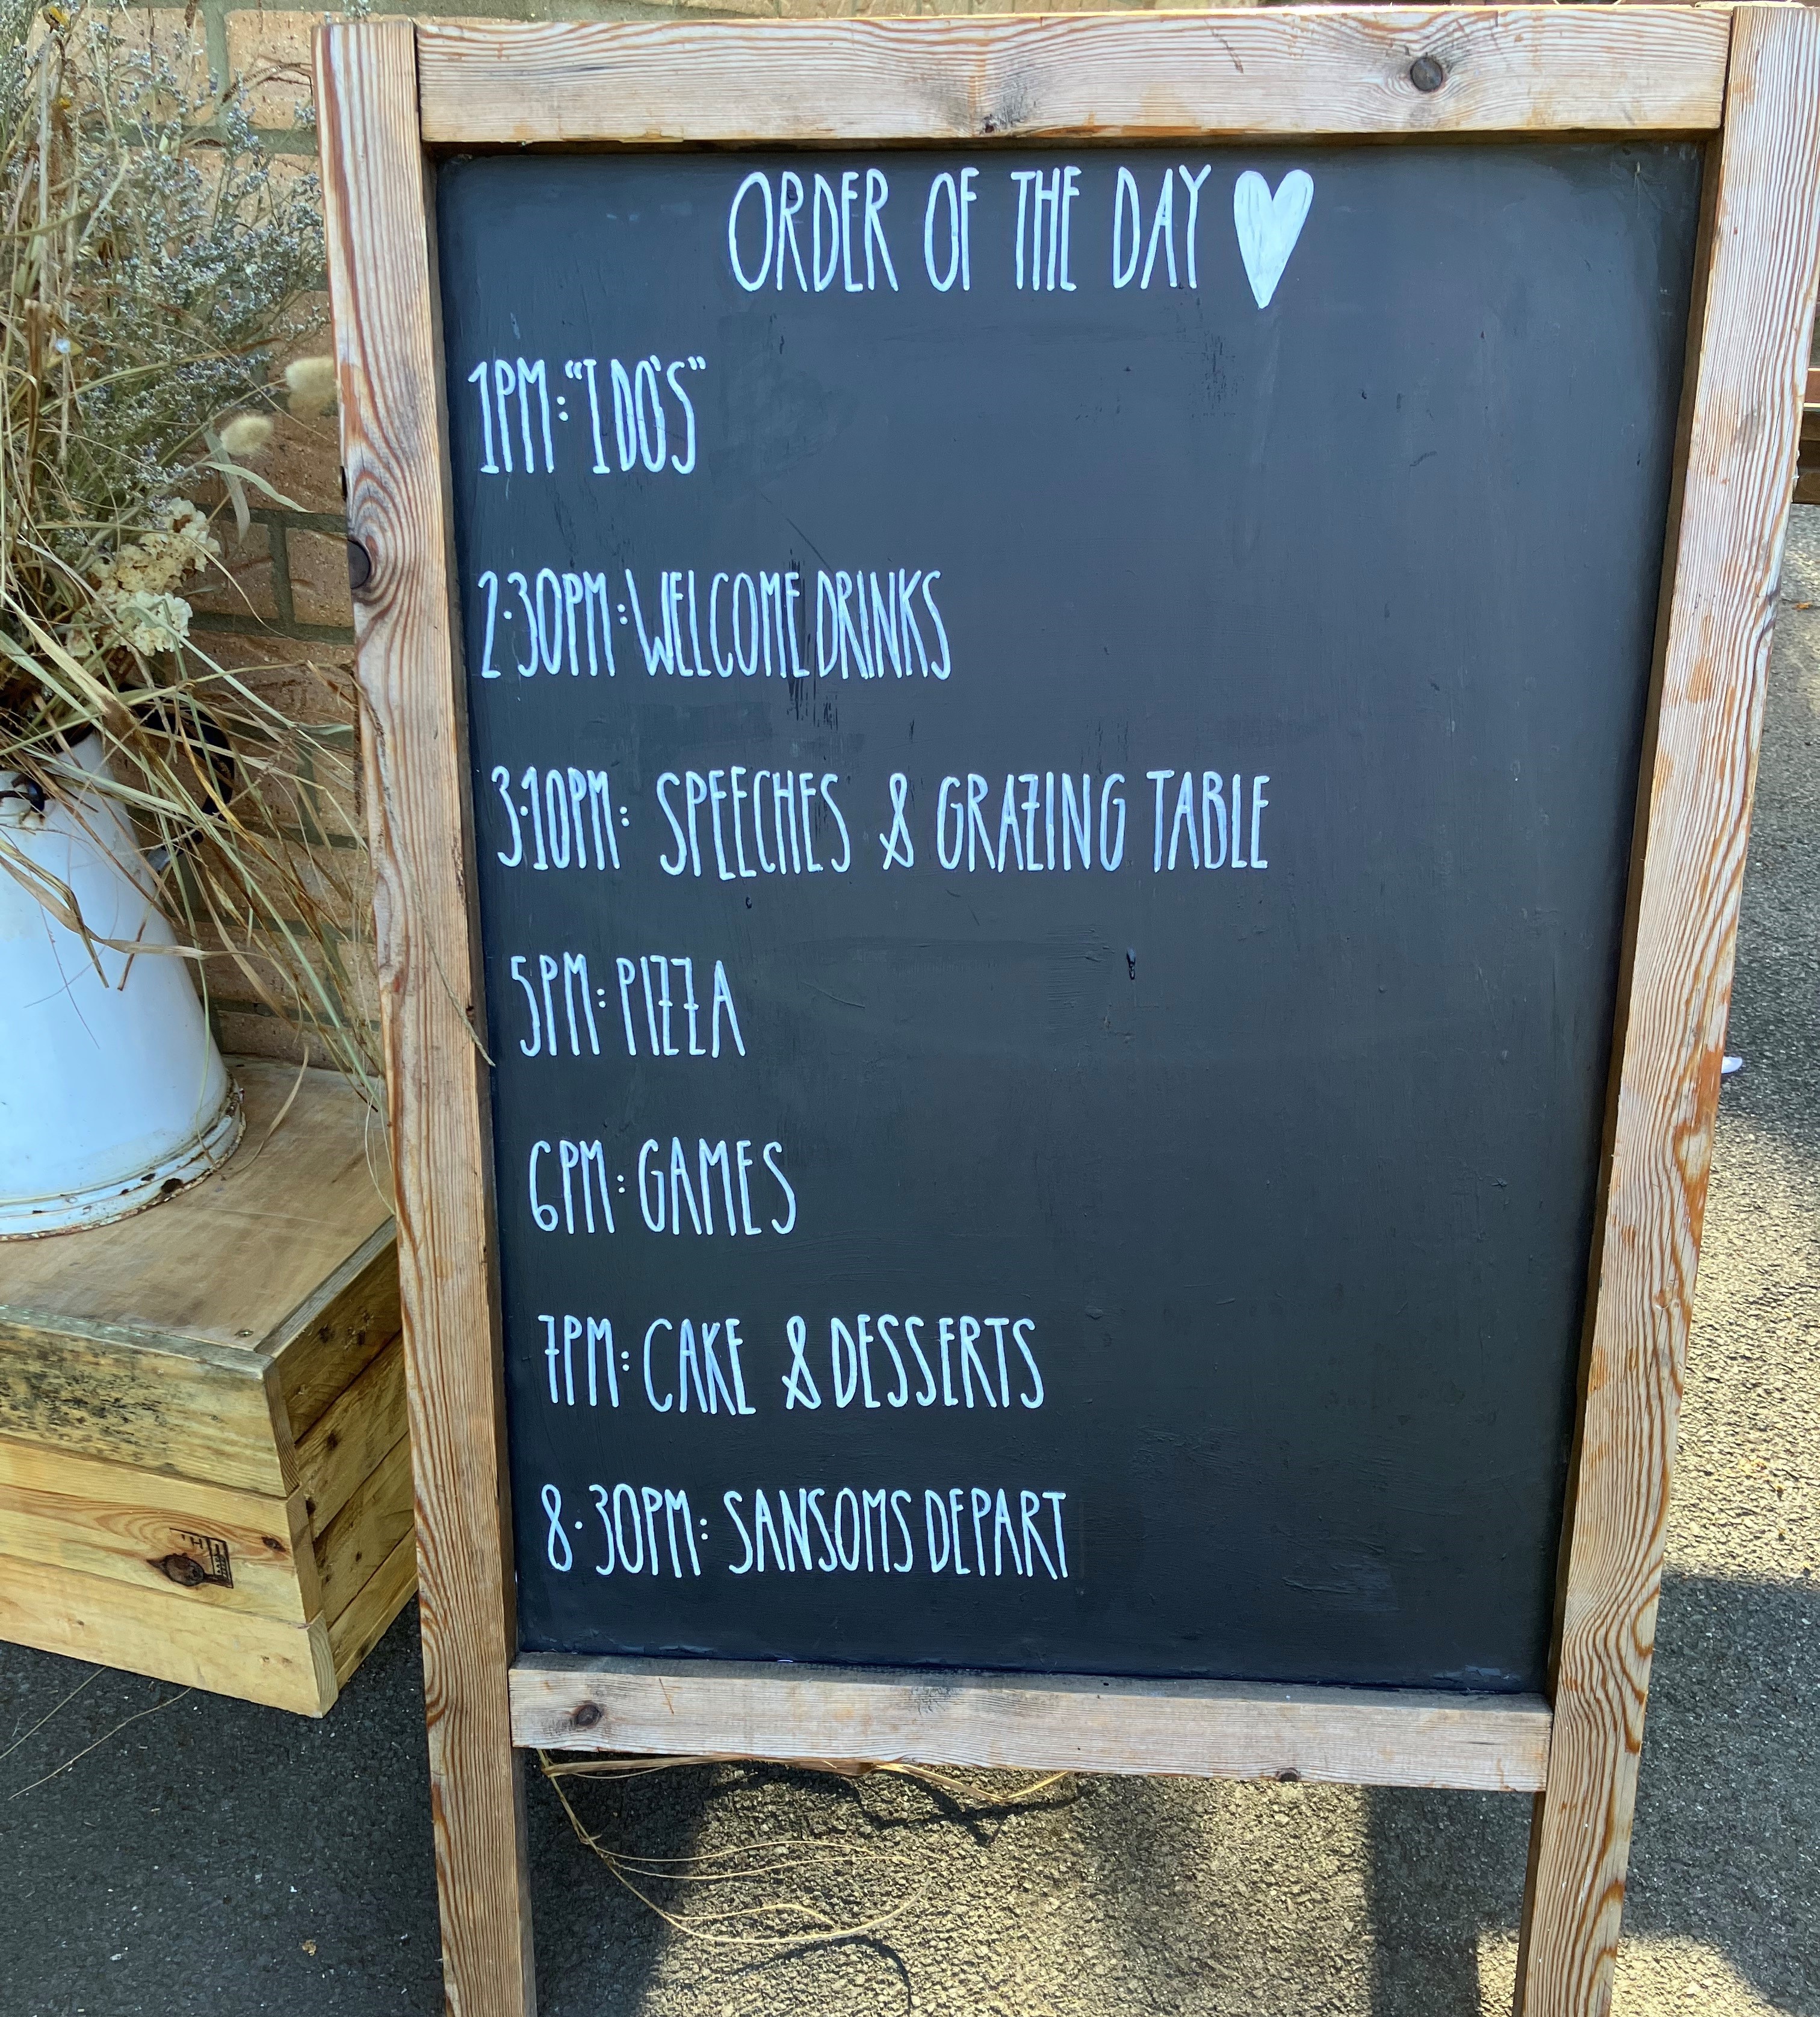 ORDER OF THE DAY ♥
1PM: "I DO'S"
2·30PM: WELCOME DRINKS
3·10PM: SPEECHES & GRAZING TABLE
5PM: PIZZA
6PM: GAMES
7PM: CAKE & DESSERTS
8·30PM: SANSOMS DEPART